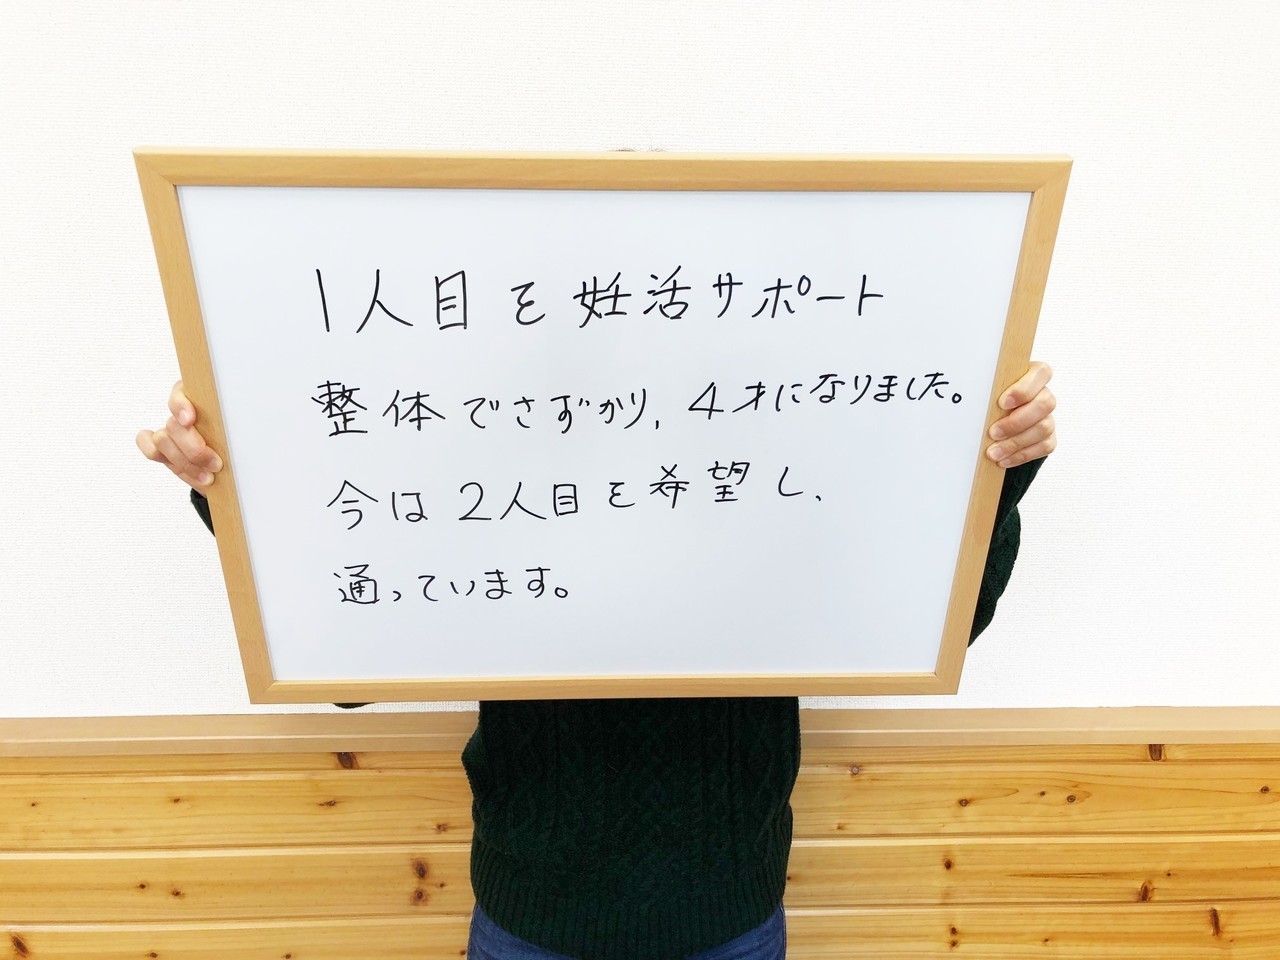 1人目を妊活サポート
整体でさずかり、4才になりました。
今は2人目を希望し、
通っています。